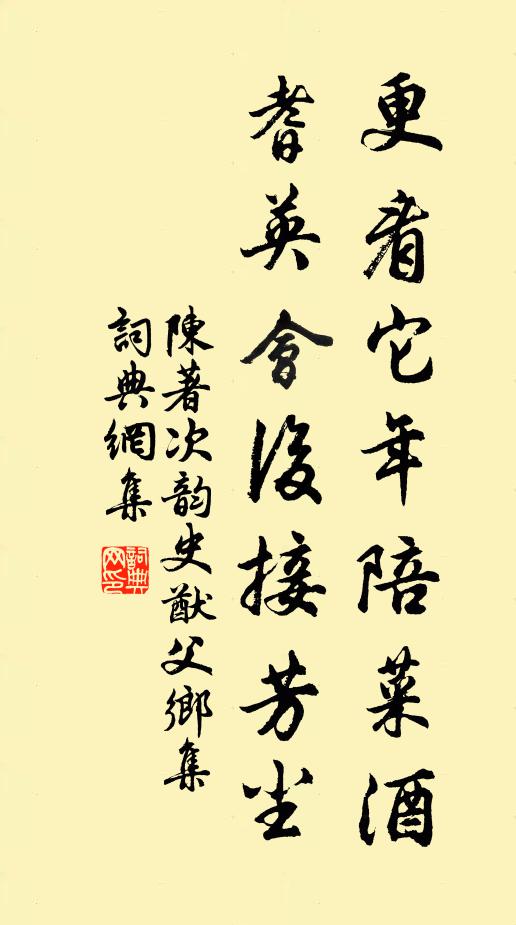 更看它年陪菜酒
耆英會後接芳尘
陳著次韵史猷父鄉集
詞典網集
詞典网印